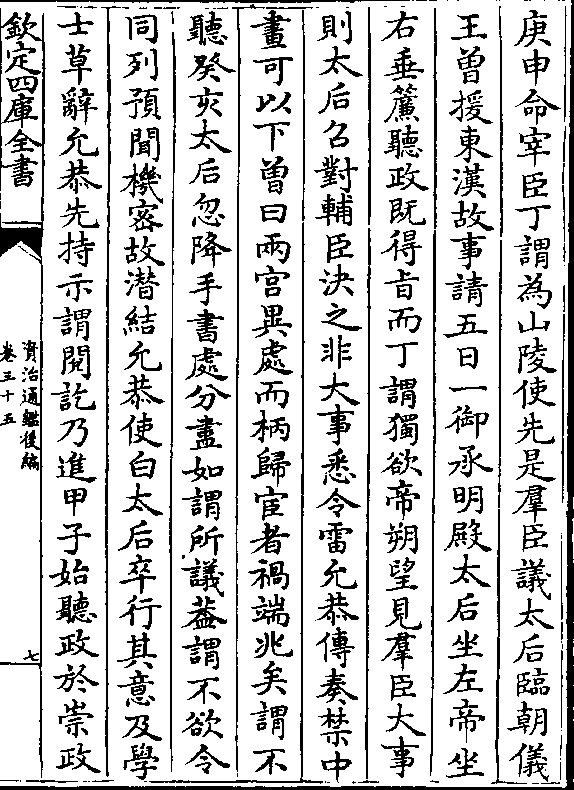 庚申命宰臣丁謂為山陵使先是羣臣議太后臨朝儀
王曽援東漢故事請五日一御承明殿太后坐左帝坐
右垂簾聽政既得㫖而丁謂獨欲帝朔望見羣臣大事
則太后召對輔臣決之非大事悉令雷允恭傳奏禁中
畫可以下曽曰兩宫異處而柄歸宦者禍端兆矣謂不
聽癸亥太后忽降手書處分盡如謂所議葢謂不欲令
同列預聞機密故潛結允恭使白太后卒行其意及學
士草辭允恭先持示謂閱訖乃進甲子始聽政於崇政
欽定四庫全書
資治通鑑後編
卷三十五
七